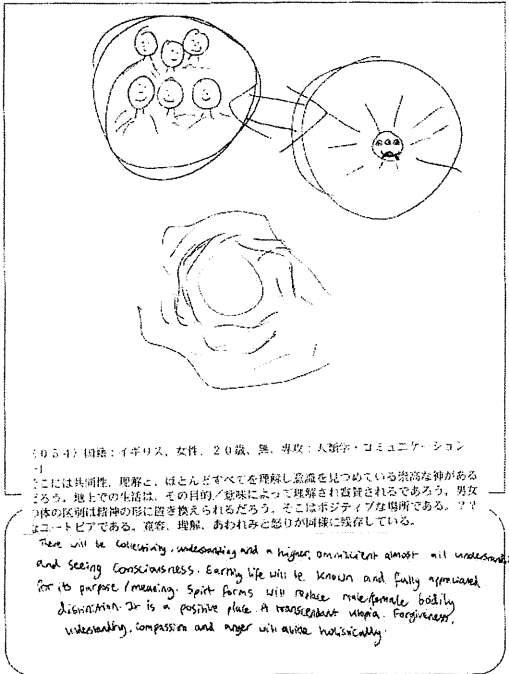 (054) 国籍:イギリス, 女性, 20歳, 無, 専攻:人類学・コミュニケーション
-1
そこには共同性, 理解と, ほとんどすべてを理解し意識を見つめている崇高な神がある
だろう. 地上での生活は, その目的/意味によって理解され賞賛されるであろう. 男女
の体の区別は精神の形に置き換えられるだろう. そこはポジティブな場所である. ??
なユートピアである. 寛容, 理解, あわれみと怒りが同様に残存している.
There will be collectivity, understanding and a higher, omniscient almost all understanding
and seeing consciousness. Earthly life will be known and fully appreciated
for its purpose/meaning. Spirt forms will replace male/female bodily
distinction. It is a positive place. A transcendant utopia. Forgiveness,
understanding, compassion and anger will abide holistically.